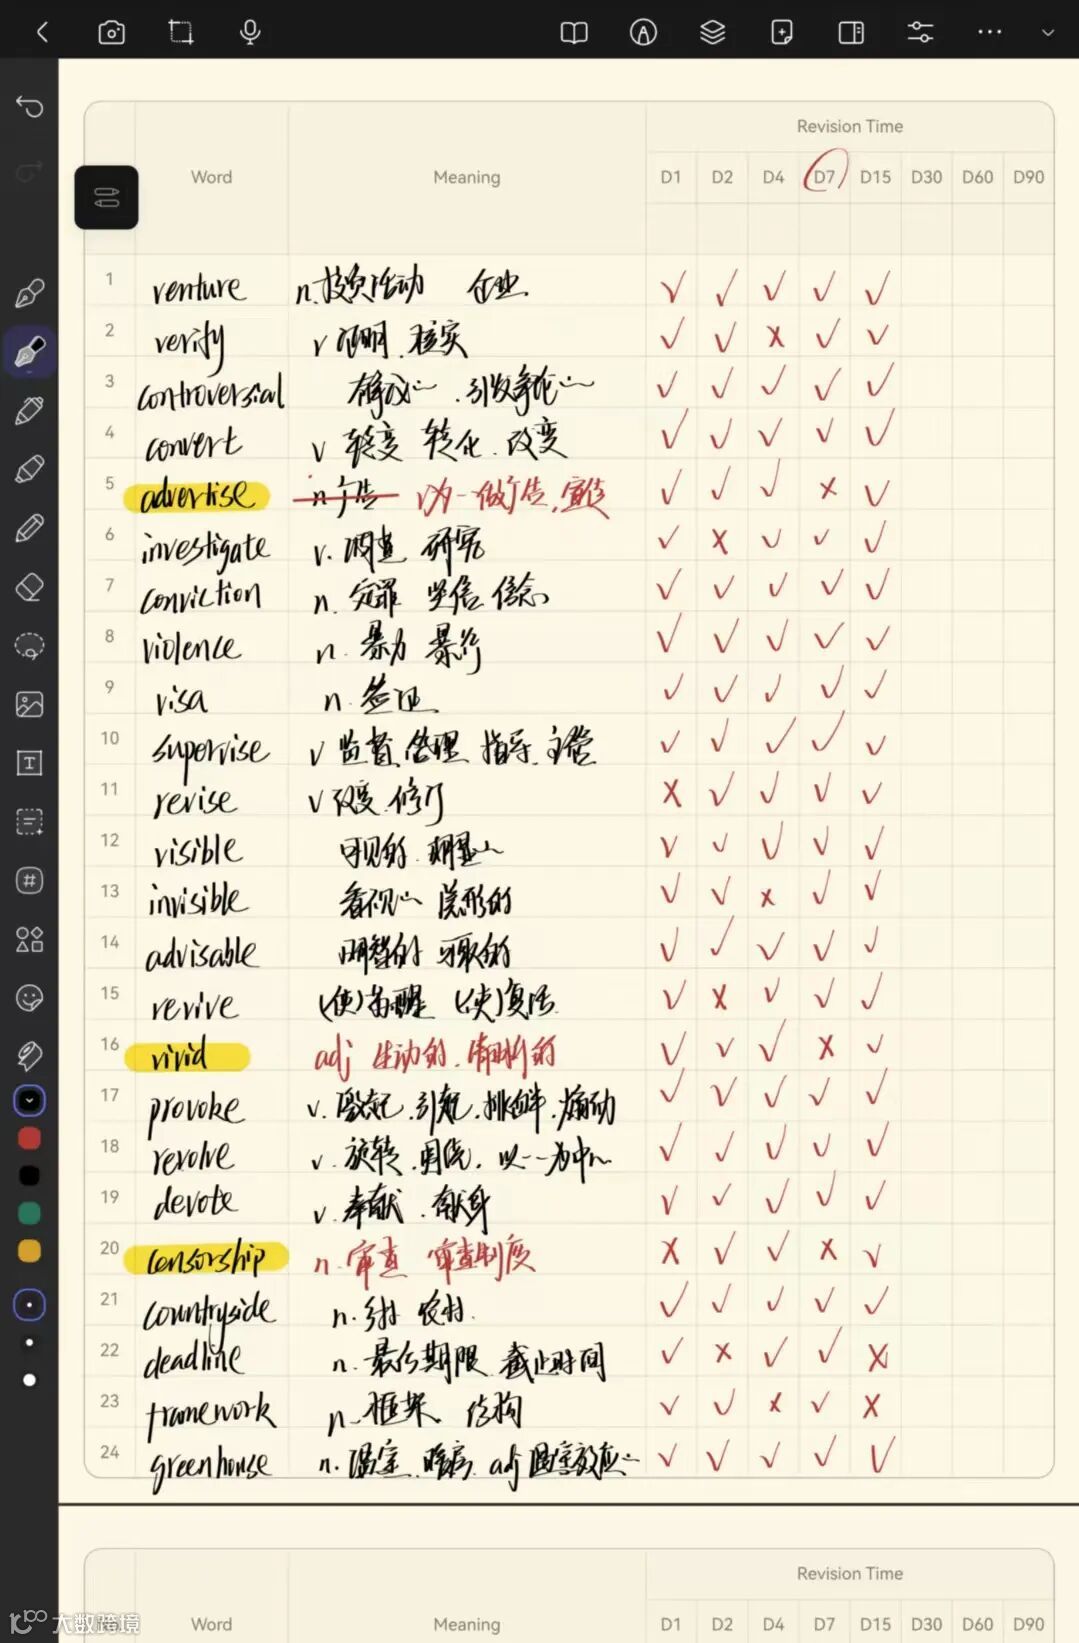 Revision Time
Word Meaning D1 D2 D4 D7 D15 D30 D60 D90
1 venture n. 投资活动 企业 ✓ ✓ ✓ ✓ ✓
2 verify v 证明 核实 ✓ ✓ ✗ ✓ ✓
3 controversial 引发争论 ✓ ✓ ✓ ✓ ✓
4 convert v 转变 转化 改变 ✓ ✓ ✓ ✓ ✓
5 advertise n 广告 v 为一做广告, 宣传 ✓ ✓ ✓ ✗ ✓
6 investigate v. 调查 研究 ✓ ✗ ✓ ✓ ✓
7 conviction n. 定罪 坚信 信念 ✓ ✓ ✓ ✓ ✓
8 violence n. 暴力 暴行 ✓ ✓ ✓ ✓ ✓
9 visa n. 签证 ✓ ✓ ✓ ✓ ✓
10 supervise v 监督 管理 指导 主管 ✓ ✓ ✓ ✓ ✓
11 revise v 改变 修订 ✗ ✓ ✓ ✓ ✓
12 visible 可见的 明显 ✓ ✓ ✓ ✓ ✓
13 invisible 隐形的 ✓ ✓ ✗ ✓ ✓
14 advisable 明智的 可取的 ✓ ✓ ✓ ✓ ✓
15 revive (使)苏醒 (使)复活 ✓ ✗ ✓ ✓ ✓
16 vivid adj 生动的. 清晰的 ✓ ✓ ✓ ✗ ✓
17 provoke v. 激起. 引起. 挑衅. 煽动 ✓ ✓ ✓ ✓ ✓
18 revolve v. 旋转. 围绕. 以一一为中心 ✓ ✓ ✓ ✓ ✓
19 devote v. 奉献. 献身 ✓ ✓ ✓ ✓ ✓
20 censorship n. 审查 审查制度 ✗ ✓ ✓ ✗ ✓
21 countryside n. 乡村 农村. ✓ ✓ ✓ ✓ ✓
22 deadline n. 最后期限 截止时间 ✓ ✗ ✓ ✓ ✗
23 framework n. 框架 结构 ✓ ✓ ✗ ✓ ✗
24 greenhouse n. 温室. 暖房. adj 温室效应 ✓ ✓ ✓ ✓ ✓
Revision Time
Word Meaning D1 D2 D4 D7 D15 D30 D60 D90
大数跨境